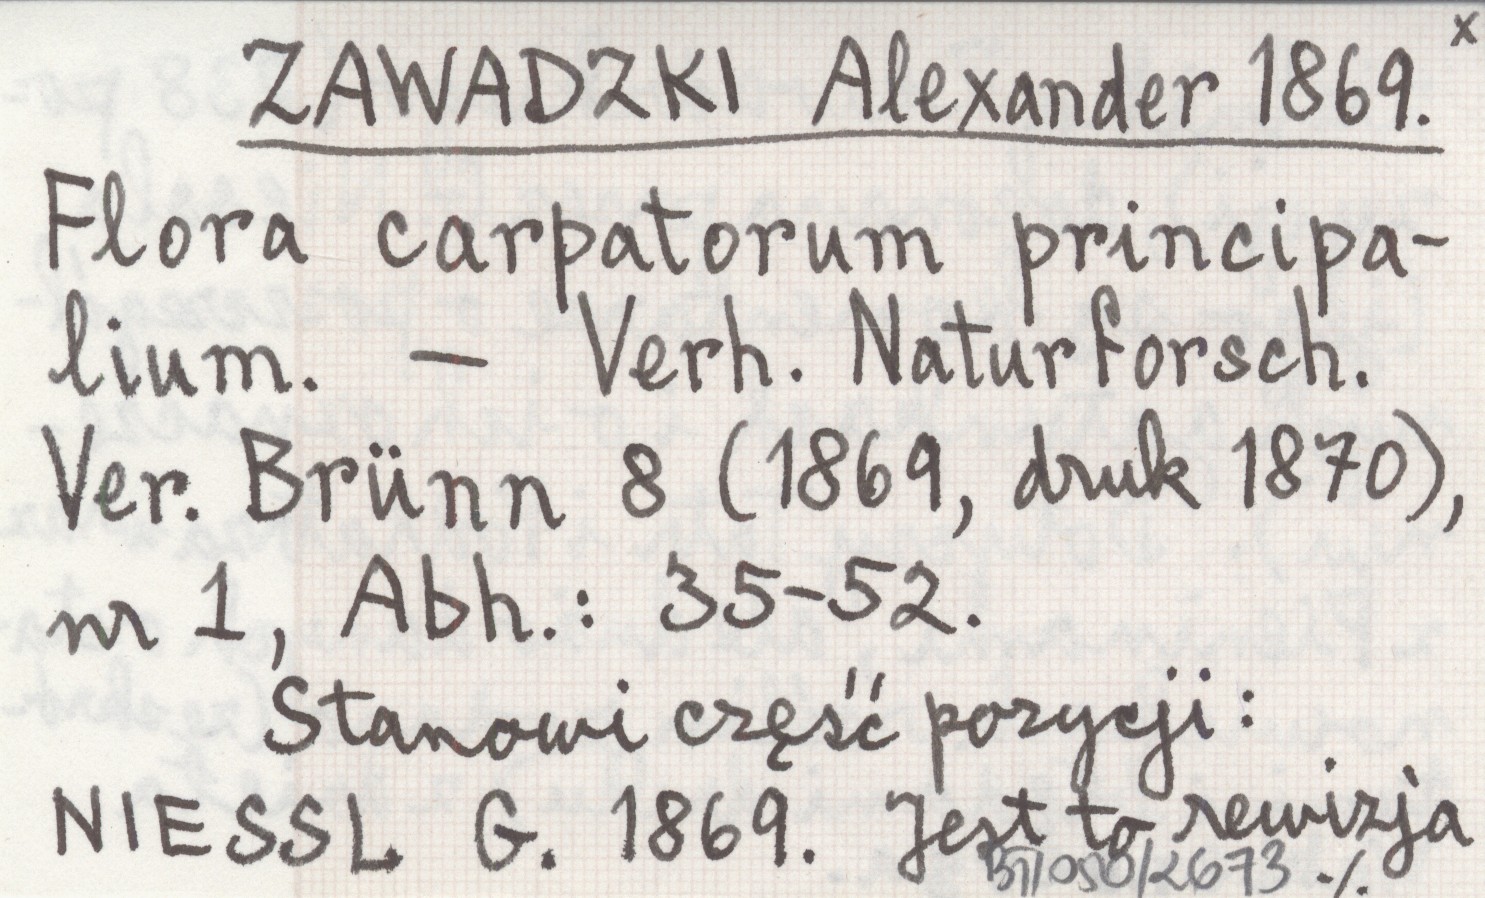 x
ZAWADZKI Alexander 1869.
Flora carpatorum principa-
lium. — Verh. Naturforsch.
Ver. Brünn 8 (1869, druk 1870),
nr 1, Abh.: 35-52.
Stanowi część pozycji:
NIESSL G. 1869. Jest to rewizja
/2673 ./.